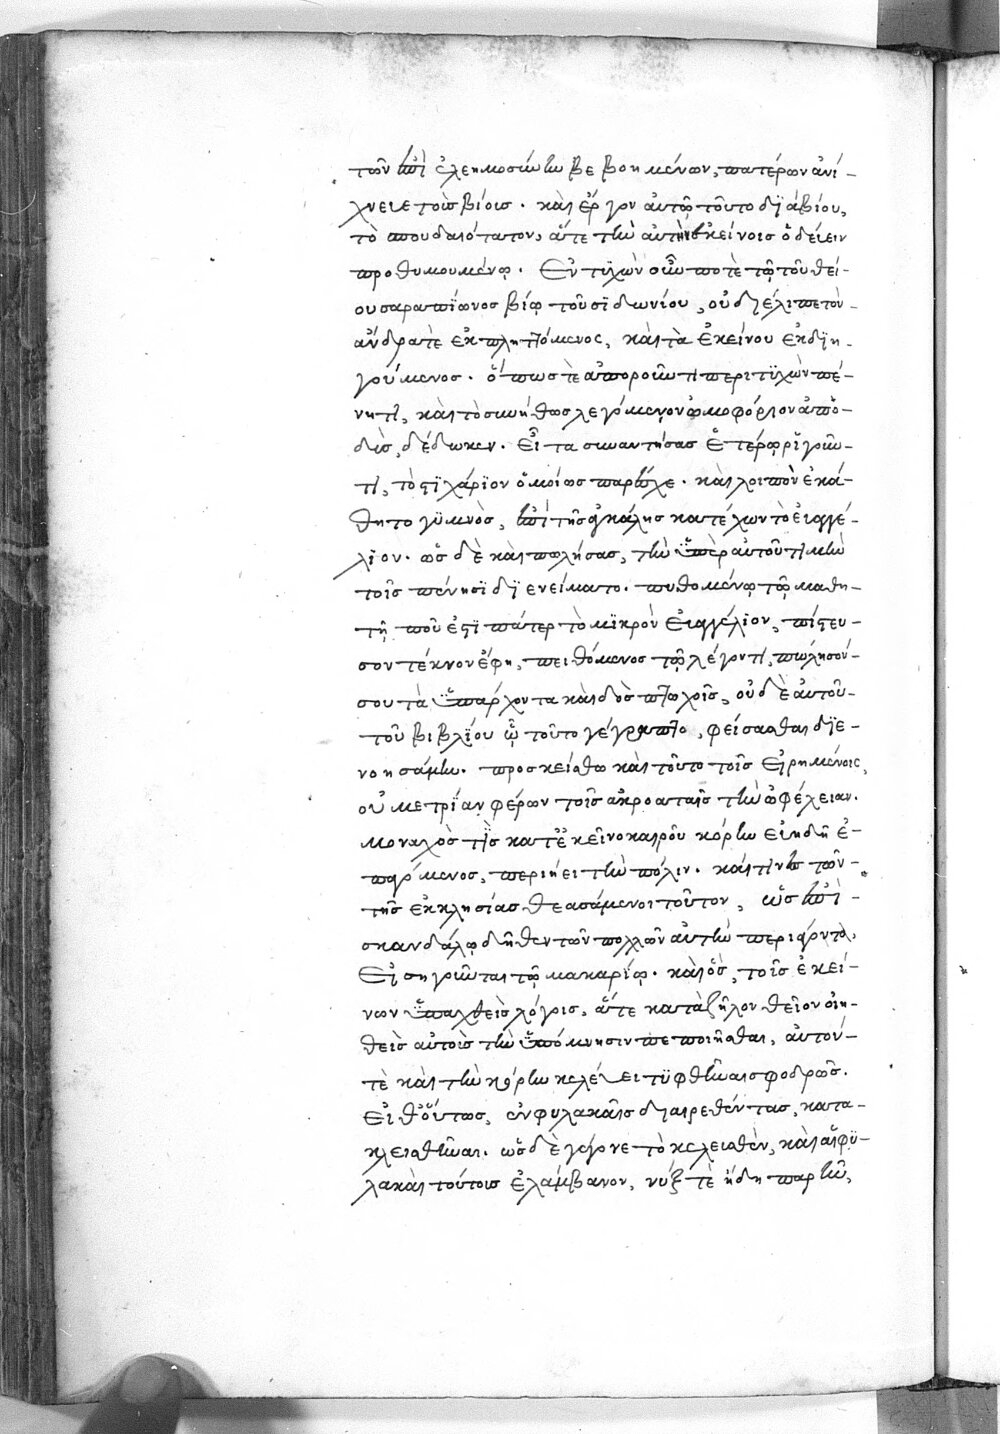 τῶν ἐπὶ ἐλεημοσύνῃ βεβοημένων, πατέρων ἀνί-
χνευε τοῖς βίοις. καὶ ἔργον αὐτῷ τοῦτο διὰ βίου,
τὸ σπουδαιότατον, ἅτε τὴν αὐτὴν ἐκείνοις ὁδεύειν
προθυμουμένῳ. Ἐντυχὼν οὖν ποτὲ τῷ τοῦ θεί-
ου σαραπίωνος βίῳ τοῦ σιδωνίου, οὐ διέλιπε τὸν
ἄνδρα τὲ ἐκπληττόμενος, καὶ τὰ ἐκείνου ἐκδιη-
γούμενος. ὅπως τὲ ἀποροῦντι περιτυχὼν πέ-
νητι, καὶ τὸ συνήθως λεγόμενον ὠμοφόριον ἀπο-
δὺς, δέδωκεν. Εἶτα συναντήσας ἑτέρῳ ῥιγοῦν-
τι, τὸ στιχάριον ὁμοίως παρέσχε. καὶ λοιπὸν ἐκά-
θητο γυμνὸς, ἐπὶ τῆς ἀγκάλης κατέχων τὸ εὐαγγέ-
λιον. ὡς δὲ καὶ πωλήσας, τὴν ὑπὲρ αὐτοῦ τιμὴν
τοῖς πένησι διενείματο. πυθομένῳ τῷ μαθη-
τῇ ποῦ ἐστι πάτερ τὸ μικρὸν εὐαγγέλιον, πίστευ-
σον τέκνον ἔφη, πειθόμενος τῷ λέγοντι, πώλησόν
σου τὰ ὑπάρχοντα καὶ δὸς πτωχοῖς, οὐδὲ αὐτοῦ
τοῦ βιβλίου ᾧ τοῦτο γέγραπτο, φείσασθαι διε-
νοησάμην. προσκείσθω καὶ τοῦτο τοῖς εἰρημένοις,
οὐ μετρίαν φέρων τοῖς ἀκροαταῖς τὴν ὠφέλειαν.
μοναχὸς τὶς κατ' ἐκεῖνο καιροῦ κόρην εὐειδῆ ἐ-
παγόμενος, περιῄει τὴν πόλιν. καί τινες τῶν
τῆς ἐκκλησίας θεασάμενοι τοῦτον, ὡς ἐπὶ
σκανδάλῳ δῆθεν τῶν πολλῶν αὐτὴν περιάγοντα,
Εἰσηγοῦνται τῷ μακαρίῳ. καὶ ὃς, τοῖς ἐκεί-
νων ὑπαχθεὶς λόγοις, ἅτε κατὰ ζῆλον θεῖον οἰη-
θεὶς αὐτοὺς τὴν ὑπόμνησιν πεποιῆσθαι, αὐτόν
τὲ καὶ τὴν κόρην κελεύει τυφθῆναι σφοδρῶς.
Εἶθ' οὕτως, ἐν φυλακαῖς διαιρεθέντας, κατα-
κλεισθῆναι. ὡς δὲ γέγονε τὸ κελευσθὲν, καὶ αἱ φυ-
λακαὶ τούτους ἐλάμβανον, νύξ τὲ ἤδη παρῆν,